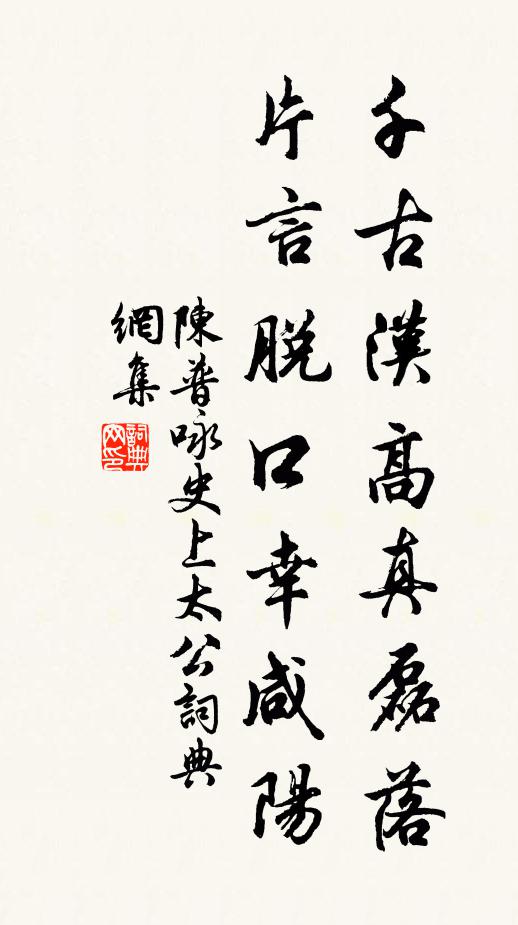 千古漢高真磊落
片言脫口幸咸陽
陳普咏史上太公詞典
網集
詞典
网印